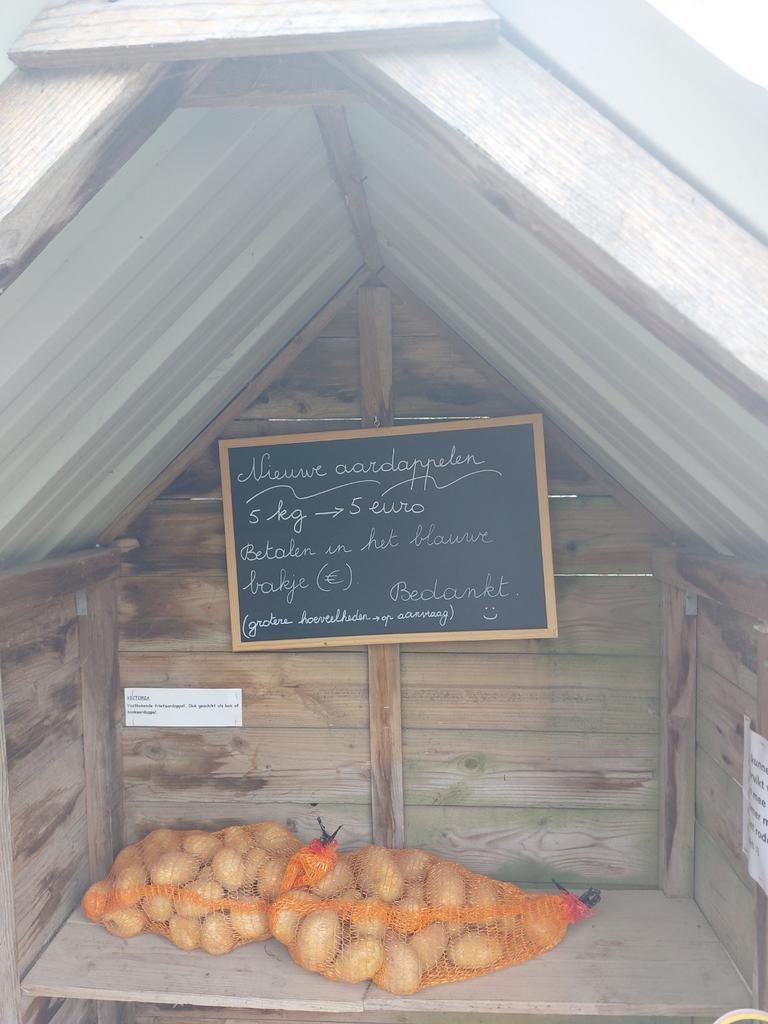 Nieuwe aardappelen
5 kg → 5 euro
Betalen in het blauwe
bakje (€).
Bedankt.
(grotere hoeveelheden → op aanvraag) :)
VICTORIA
Vastkokende frietaardappel. Ook geschikt als bak of
kookaardappel.